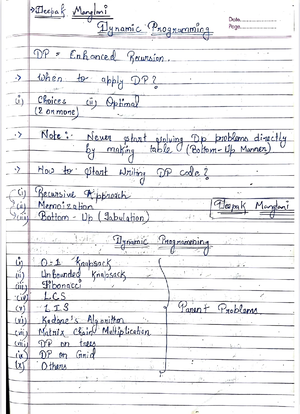 → Deepak Manglani
Date
Page
Dynamic Programming
DP = Enhanced Recursion..
→ When to apply DP?
(i) Choices (ii) Optimal
(2 or more)
→ Note:- Never start solving Dp problems directly
by making table (Bottom-Up Manner)
→ How to start Writing DP code?
(i) Recursive Approach
(ii) Memoization
(iii) Bottom-Up (Tabulation)
Deepak Manglani
Dynamic Programming
(i) 0-1 Knapsack
(ii) Unbounded Knapsack
(iii) Fibonacci
(iv) LCS
(v) LIS
(vi) Kadane's Algorithm
(vii) Matrix Chain Multiplication
(viii) DP on trees
(ix) DP on Grid
(x) Others
Parent Problems